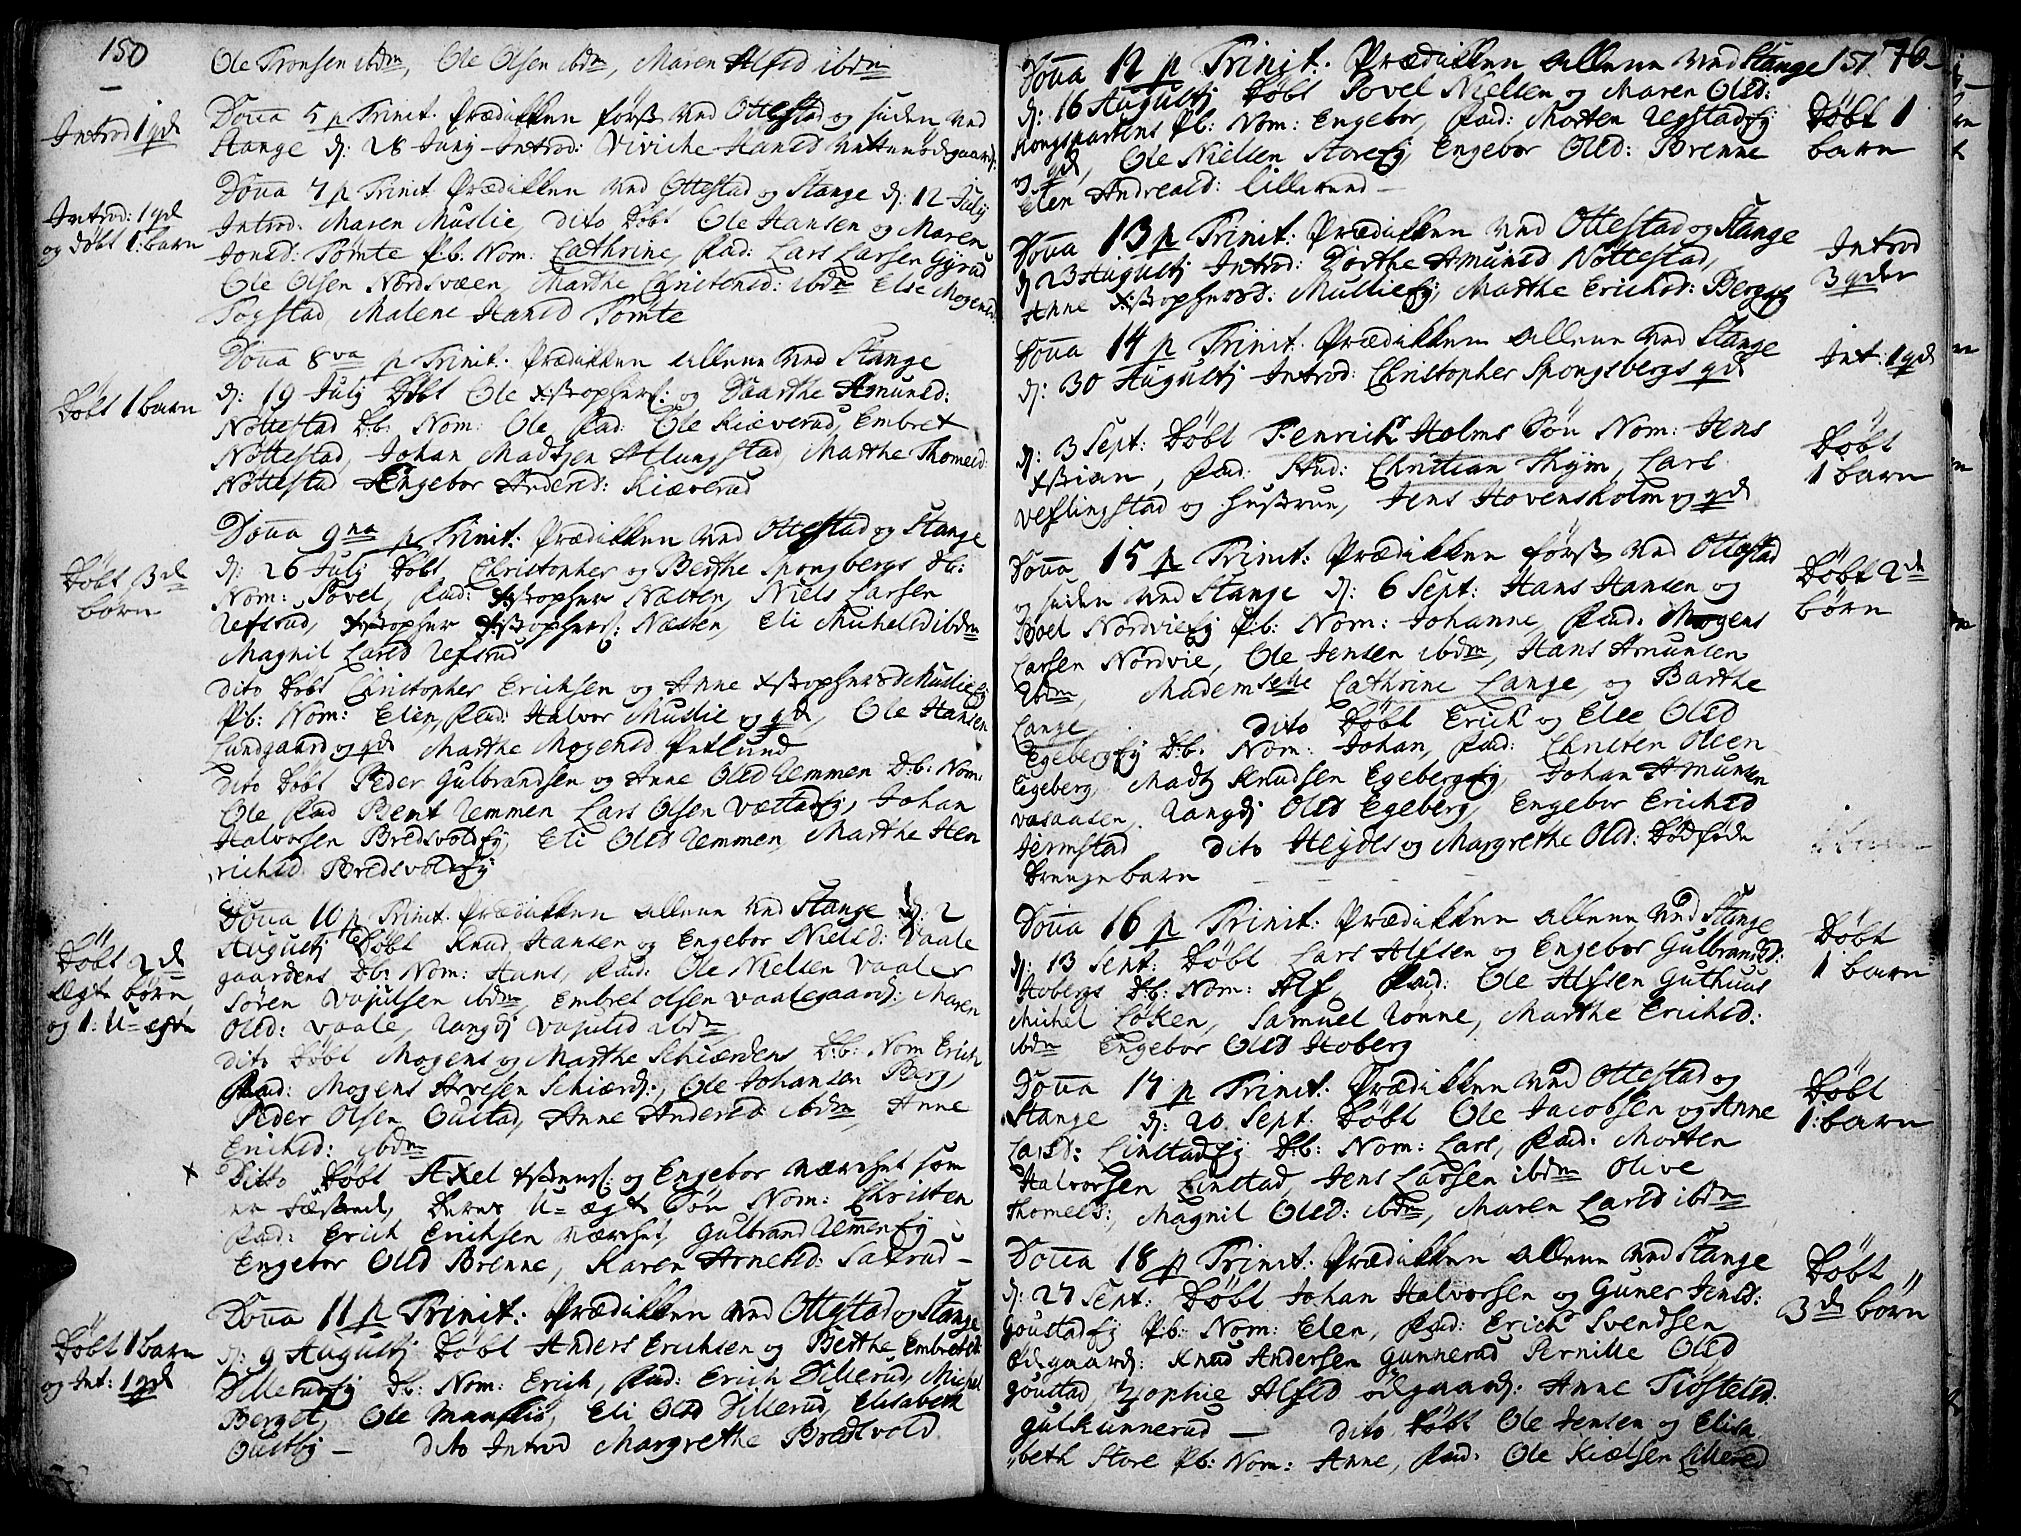 150
Ole Tronsen ibdm, Ole Olsen ibdm, Maren Alfsd ibdm
Introd 1 qde
Doūa 5 p Trinit. Prædikken först ved Ottestad og siden ved
Stange d: 28 Junij Introd: Viviche Hansd
Introd: 1 qde
og döbt 1: barn
Doūa 7 p Trinit Prædikken ved Ottestad og Stange d: 12 Julij
Introd: Maren Muslie, dito Döbt Ole Hansen og Maren
Jonsd: Tömte P:b: Nom: Cathrine, Fad: Lars Larsen Gyrud
Ole Olsen Nordsveen, Marthe Christensd: ibdm Else Mogensd:
Togstad Malene Hansd Tömte
Döbt 1 barn
Doūa 8va p Trinit. Prædikken allene ved Stange
d: 19 Julij Döbt Ole Xstophers: og Daarthe Amunsd:
Nöttestad D:b: Nom: Ole, Fad: Ole Kiæverud, Embret
Nöttestad, Johan Madtzen Atlungstad, Marthe Thomesd:
Nöttestad Engebor Andersd: Kiæverud
Döbt 3de
börn
Doūa 9na p Trinit: Prædikken ved Ottestad og Stange
d: 26 Julij Döbt Christopher og Berthe Spongbergs D:b:
Nom: Povel, Fad: Xstopher Næsten, Niels Larsen
Refsrud, Xstopher Xstophers: Næsten, Eli Michelsd ibdm
Magnil Larsd Refsrud
dito Döbt Christopher Erichsen og Anne Xstophersd Muslie Ej
P:b: Nom: Elen, Fad: Halvor Muslie og qde, Ole Hansen
Lundgaard og qde Marthe Mogensd Putlund
dito Döbt Peder Gulbrandsen og Anne Olsd Remmen D:b: Nom:
Ole, Fad Bent Remmen Lars Olsen Vættad Ej, Johan
Halvorsen Bredsvold Ej, Eli Olsd Remmen, Marthe Hen
richsd Bredsvold Ej
Döbt 2de
ægte börn
og 1: U-egte
Doūa 10 p Trinit. Prædikken allene ved Stange d: 2
Augustj Döbt Knud Hansen og Engebor Nielsd: Vaale
gaardens D:b: Nom: Hans, Fad: Ole Nielsen Vaaler
Sören ibdm, Embret Olsen Vaalegaard:, Maren
Olsd: Vaale, Rangdj ibdm
dito Döbt Mogens og Marthe Schiærdens D:b: Nom Erich
Fad: Mogens Arvesen Schiærd:, Ole Johansen Berg,
Peder Olsen Oustad, Anne Andersd: ibdm, Anne
Erichsd: ibdm
X Ditto Döbt Axel og Engebor som
Deres U-ægte Sön Nom: Christen
Fad: Erich Erichsen Gulbrand Remmen Ej
Engebor Olsd Brenne, Karen Arnesd: Saxrud
Döbt 1 barn
og Int: 1 qde
Doūa 11 p Trinit: Prædikken ved Ottestad og Stange
d: 9 Augustj Döbt Anders Erichsen og Berthe Embretsd
Dillerud Ej D:b: Nom: Erich, Fad: Erich Dillerud, Michel
Berget, Ole Eli Olsd Dillerud, Elisabeth
Oustbij dito Introd Margrethe Bredsvold
Doūa 12 p Trinit. Prædikken allene ved Stange 151 76
d: 16 Augustj Döbt Povel Nielsen og Maren Olsd:
Kongspartens P:b: Nom: Engebor, Fad: Morten Regstad Ej
og qde, Ole Nielsen Store Ej, Engebor Olsd: Brenne
Elen Andreasd: Lillerund
Döbt 1
barn
Doūa 13 p Trinit: Prædikken ved Ottestad og Stange
d 23 Augustj Introd: Dorthe Amunsd Nöttestad,
Anne Xstophersd: Muslie Ej, Marthe Erichsd: Berg Ej
Introd
3 qder
Doūa 14 p Trinit: Prædikken allene ved Stange
d: 30 Augustj Introd: Christopher Spongsbergs qde
Int: 1 qde
d: 3 Sept: Döbt Fenrich Holms Sön Nom: Jens
Xstian, Fad: Christian Thijm, Lars
Veslingstad og hustrue, Jens Hovensholm og qde
Döbt
1 barn
Doūa 15 p Trinit: Prædikken först ved Ottestad
og siden ved Stange d: 6 Sept: Hans Hansen og
Boel Nordvie Ej P:b: Nom: Johanne, Fad: Mogens
Larsen Nordvie, Ole Jensen ibdm, Hans Amunsen
ibdm, Mademselle Cathrine Lange, og Barthe
Lange dito Döbt Erich og Else Olsd
Egeberg Ej D:b: Nom: Johan, Fad: Christen Olsen
Egeberg, Madtz Knudsen Egeberg Ej, Johan Amunsen
Rangdj Olsd Egeberg, Engebor Erichsd
Jermstad dito Heydes og Margrethe Olsd: Dödföde
Drengebarn
Döbt 2de
börn
Doūa 16 p Trinit: Prædikken allene ved Stange
d: 13 Sept: Döbt Lars Alfsen og Engebor Gulbrandsd:
Hobergs D:b: Nom: Alf, Fad: Ole Alfsen Guthuus
Michel Löken, Samuel Rönne, Marthe Erichsd:
ibdm Engebor Olsd Hoberg
Döbt
1 barn
Doūa 17 p Trinit: Prædikken ved Ottestad og
Stange d: 20 Sept: Döbt Ole Jacobsen og Anne
Larsd: Linstad Ej D:b: Nom: Lars, Fad: Morten
Halvorsen Linstad, Jens Larsen ibdm Olive
Thomesd:, Magnil Olsd: ibdm, Maren Larsd ibdm
Döbt
1: barn
Doūa 18 p Trinit: Prædikken allene ved Stange
d: 27 Sept: Döbt Johan Halvorsen og Guner Jensd:
Goustad Ej P:b: Nom: Elen, Fad: Erich Svendsen
Odegaard: Knud Andersen Gunnerud Pernille Olsd
Goustad, Zophie Alfsd Odegaard: Anne Tiöstelsd:
Gulkunnerud dito Döbt Ole Jensen og Elisa
beth Store P:b: Nom: Anne, Fad: Ole Kielsen Lillerud
Döbt
3de börn